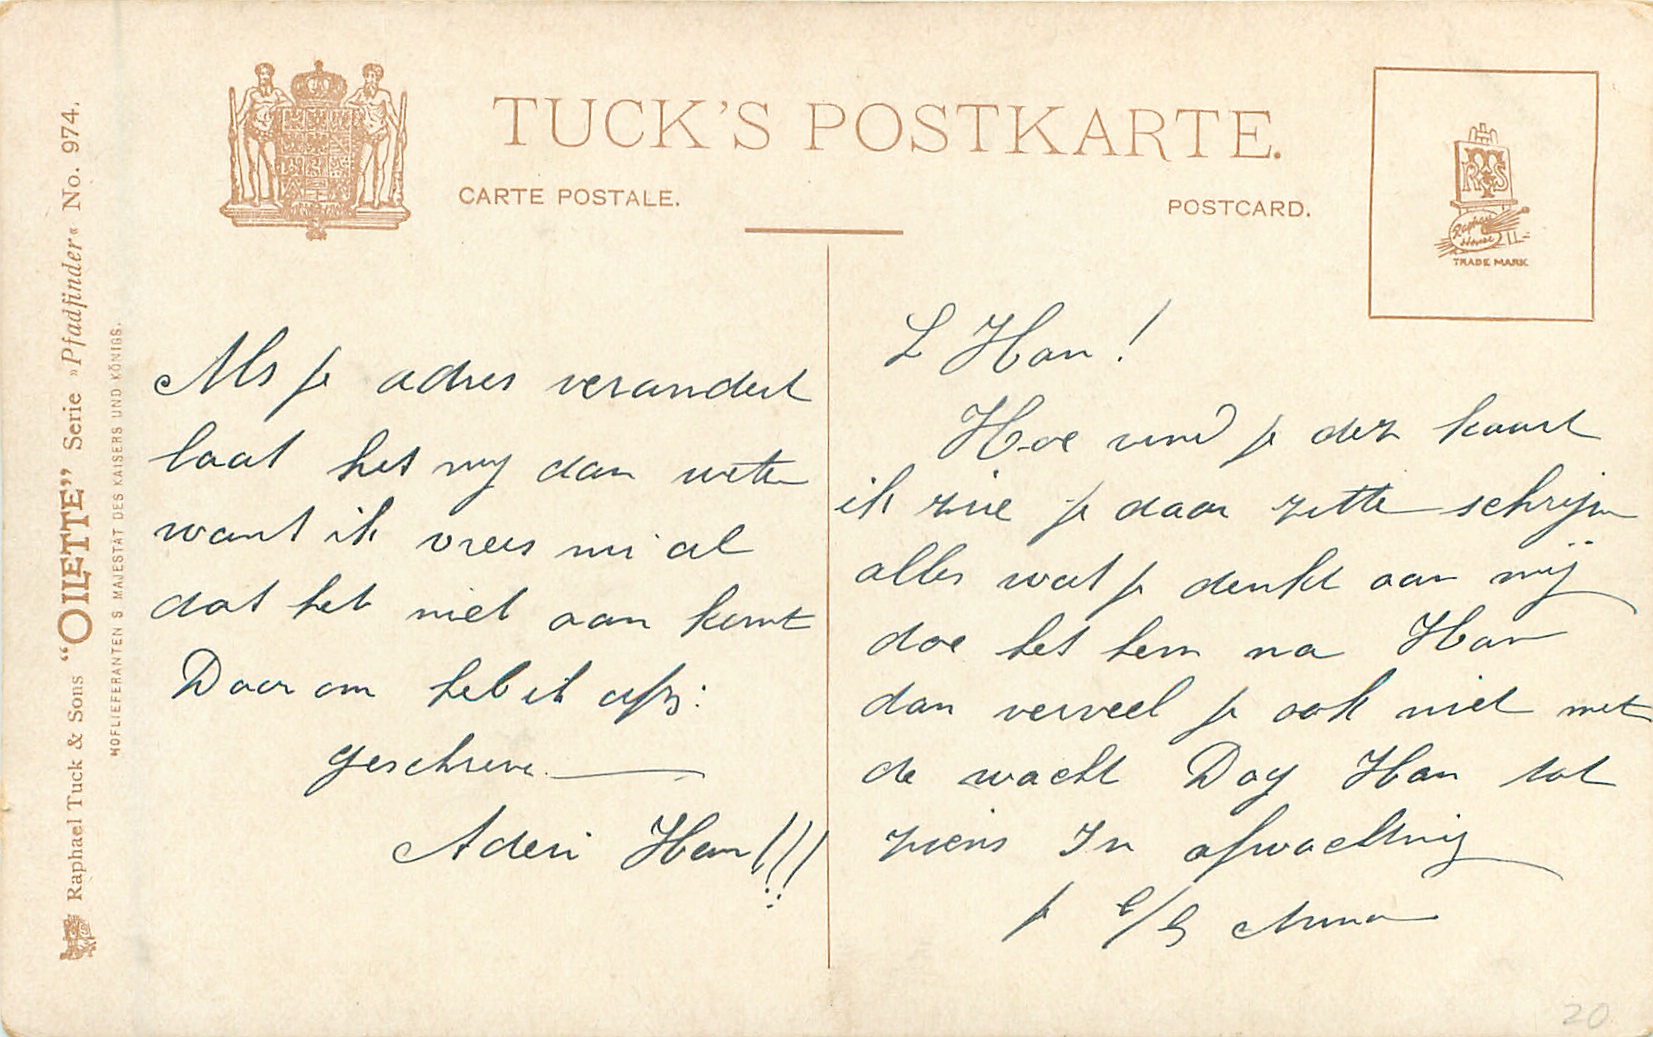 TUCK'S POSTKARTE.
CARTE POSTALE.
POSTCARD.
RTS
Raphael House
TRADE MARK
Raphael Tuck & Sons "OILETTE" Serie »Pfadfinder« No. 974.
HOFLIEFERANTEN S MAJESTÄT DES KAISERS UND KÖNIGS.
L Han!
Hoe vind je deze kaart
ik zie je daar zitte schrijve
alles wat je denkt aan mij
doe het hem na Han
dan verveel je ook niet met
de wacht Dag Han tot
ziens In afwachting
je Anna
Als je adres verandert
laat het mij dan wete
want ik vrees nu al
dat het niet aan komt
Daar om heb ik
geschreve.
Adeu Han!!!
20